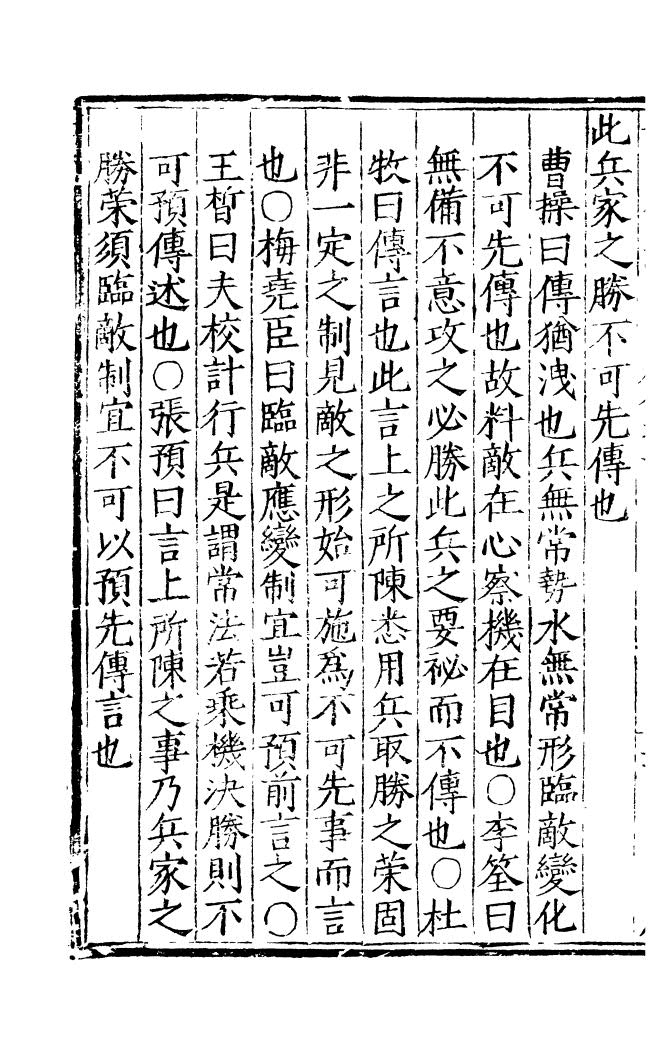 此兵家之勝不可先傳也
曹操曰傳猶洩也兵無常勢水無常形臨敵變化
不可先傳也故料敵在心察機在目也○李筌曰
無備不意攻之必勝此兵之要祕而不傳也○杜
牧曰傳言也此言上之所陳悉用兵取勝之荣固
非一定之制見敵之形始可施為不可先事而言
也○梅堯臣曰臨敵應變制宜豈可預前言之○
王晳曰夫校計行兵是謂常法若乘機決勝則不
可預傳述也○張預曰言上所陳之事乃兵家之
勝荣須臨敵制宜不可以預先傳言也